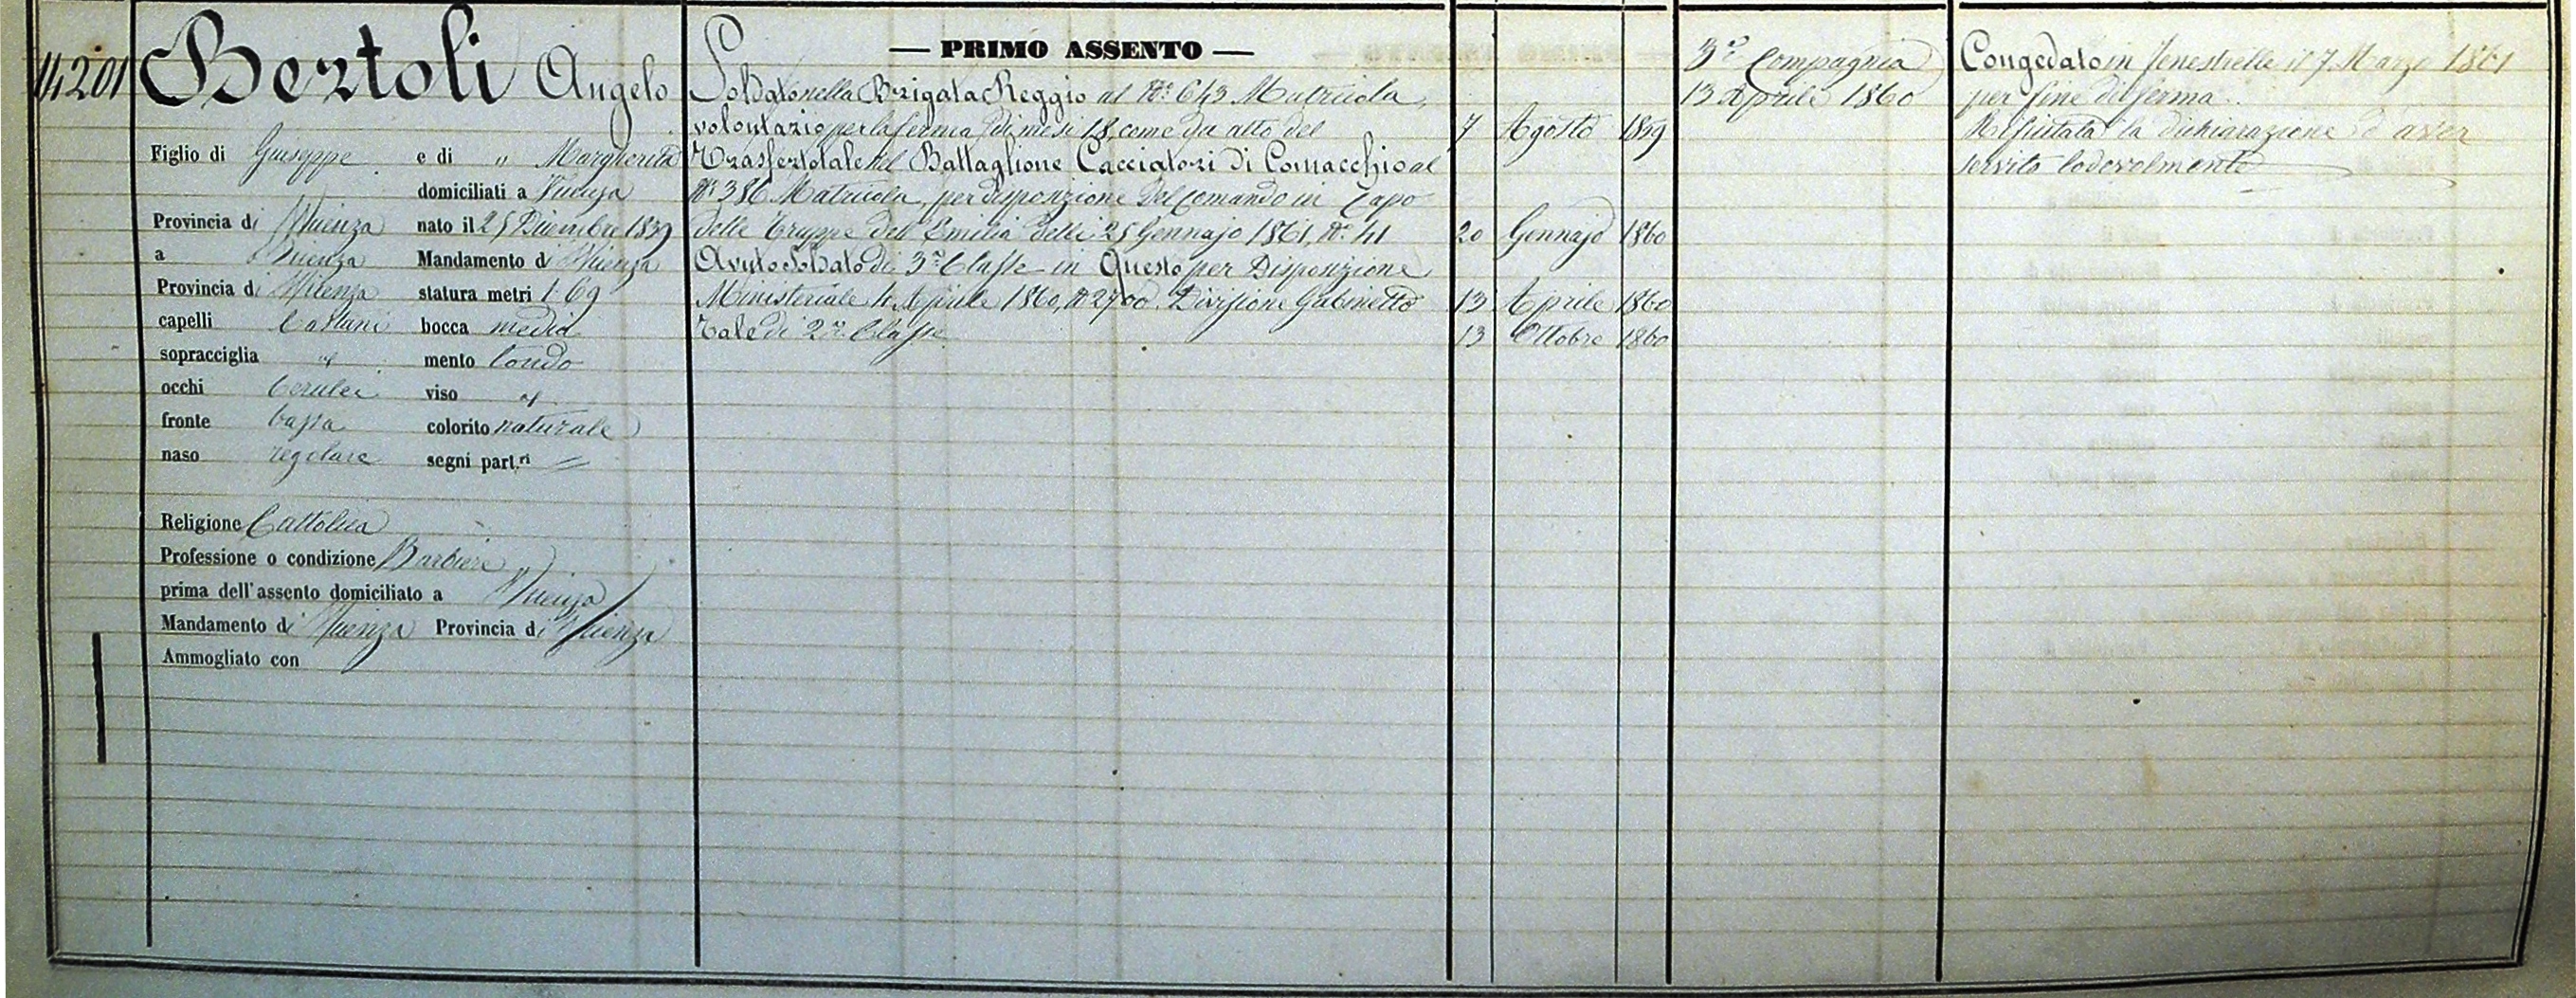 14201
Bertoli Angelo
Figlio di Giuseppe e di " Margherita
domiciliati a Vicenza
Provincia di Vicenza nato il 25 Dicembre 1839
a Vicenza Mandamento di Vicenza
Provincia di Vicenza statura metri 1.69
capelli Castani bocca media
sopracciglia id mento tondo
occhi Cerulei viso id
fronte bassa colorito naturale
naso regolare segni part.ri =
Religione Cattolica
Professione o condizione Barbiere
prima dell'assento domiciliato a Vicenza
Mandamento di Vicenza Provincia di Vicenza
Ammogliato con
— PRIMO ASSENTO —
Soldato nella Brigata Reggio al N.° 643 Matricola,
volontario per la ferma di mesi 18, come da atto del 7 Agosto 1859
Trasferto tale nel Battaglione Cacciatori di Comacchio al
N.° 386 Matricola, per disposizione del Comando in Capo
delle Truppe dell'Emilia delli 25 Gennajo 1861, N.° 41 20 Gennajo 1860
Avuto Soldato di 3.a Classe in Questo per Disposizione
Ministeriale 4 Aprile 1860, N 2700. Divisione Gabinetto 13 Aprile 1860
Tale di 2.a Classe 13 Ottobre 1860
3.a Compagnia
13 Aprile 1860
Congedato in Fenestrelle il 7 Marzo 1861
per fine di ferma.
Rifiutata la dichiarazione d'aver
servito lodevolmente